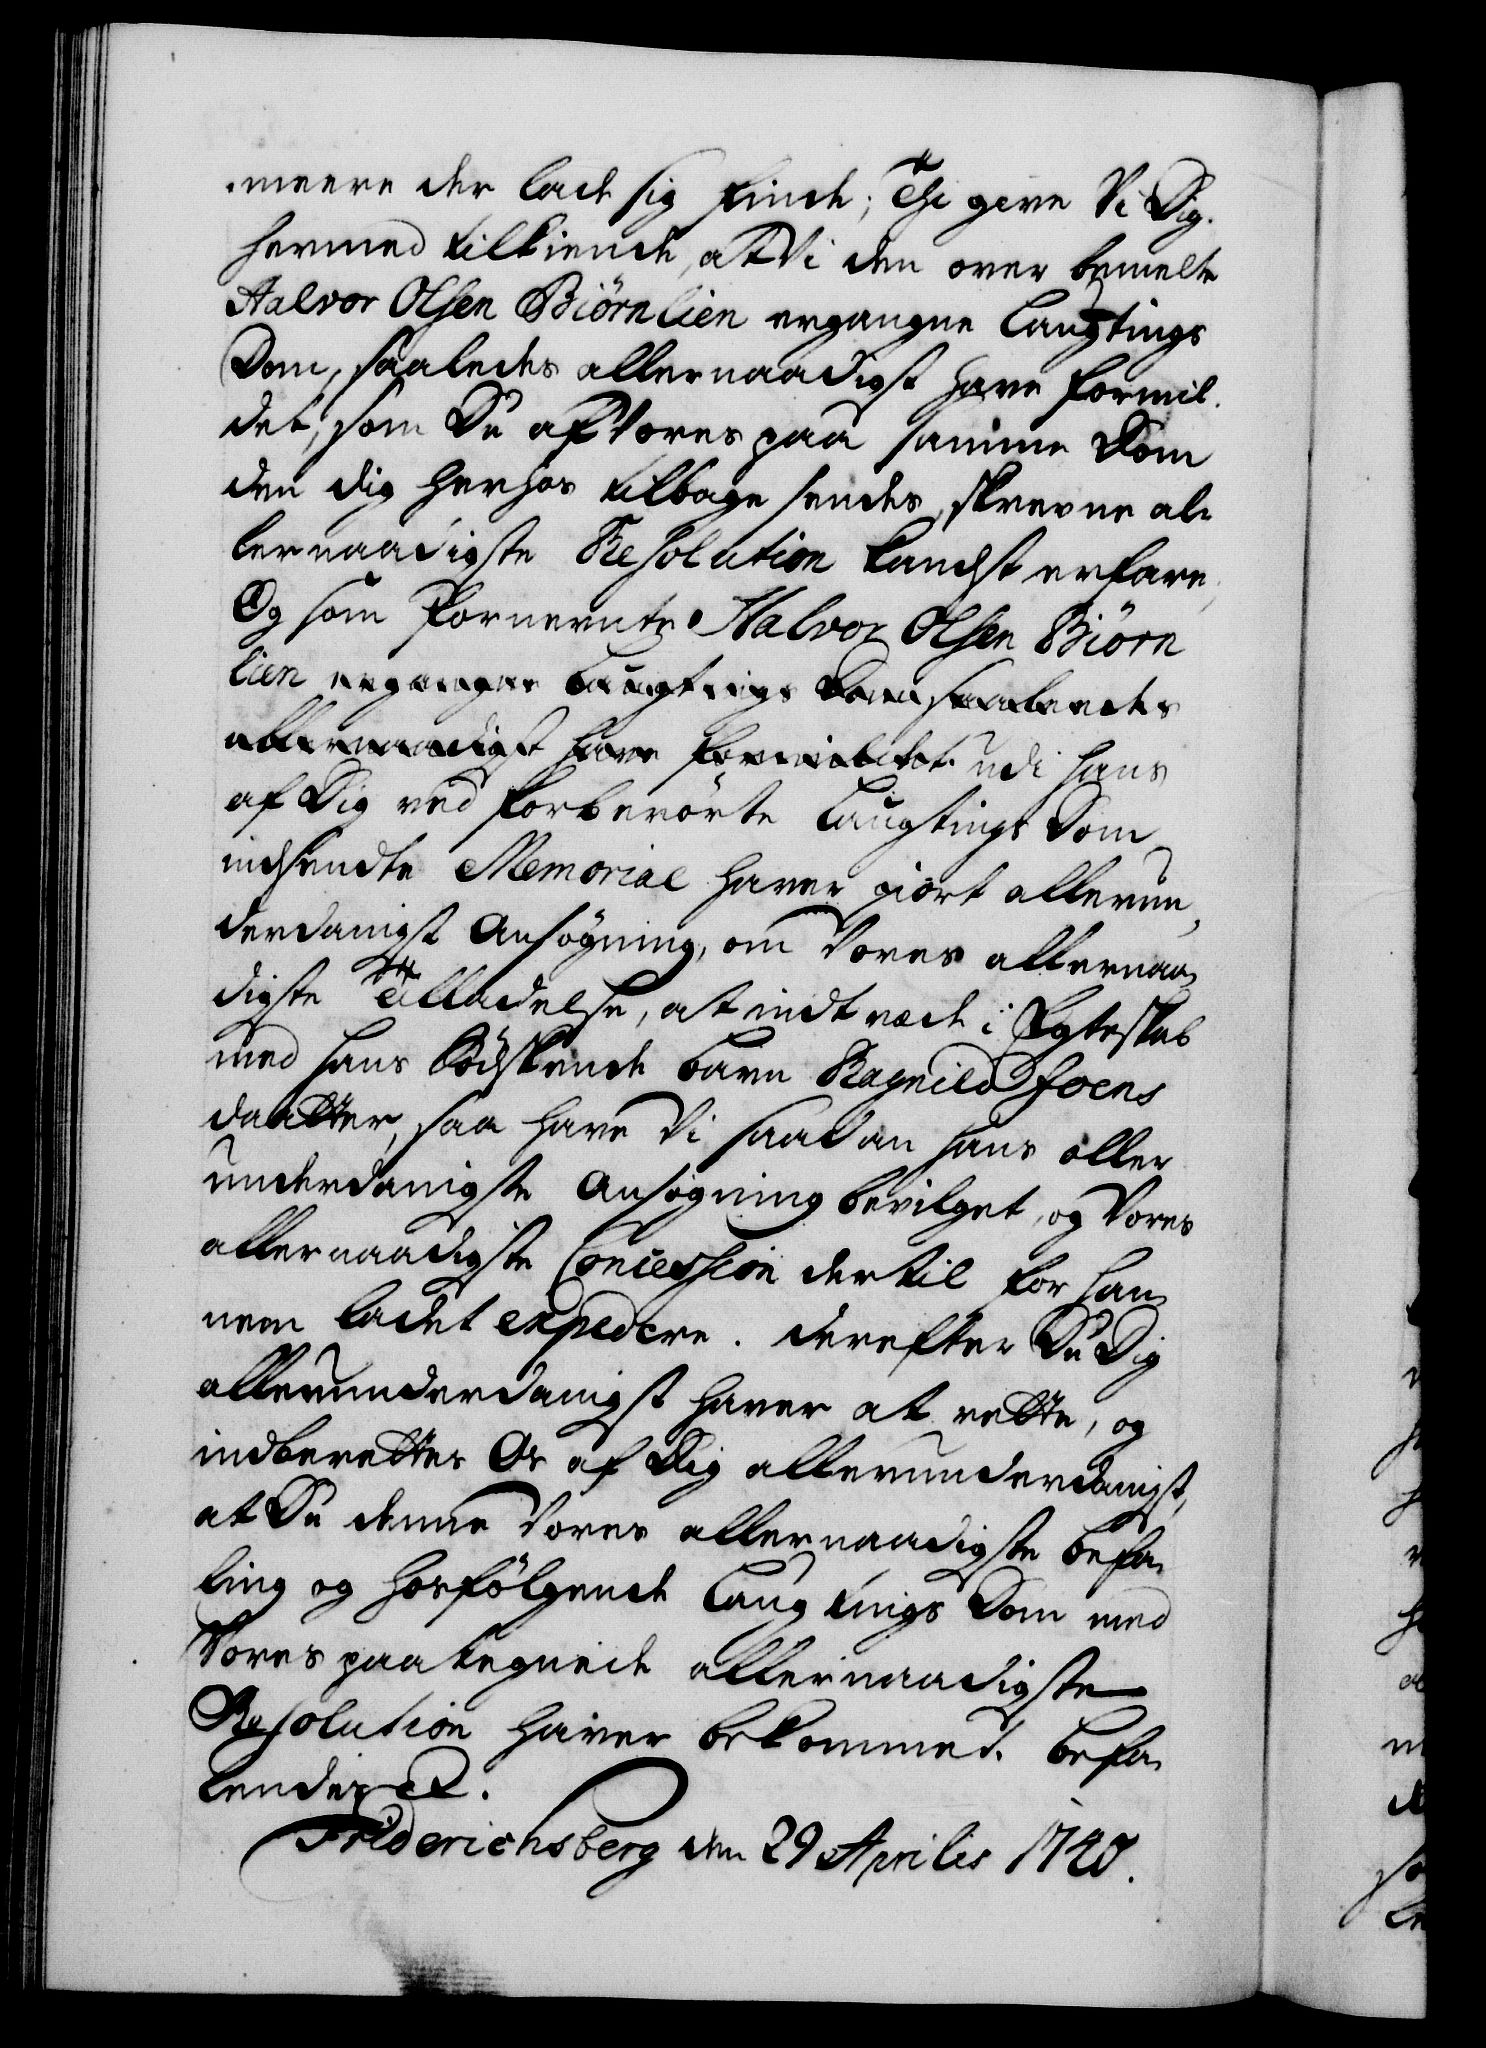 meere der lade sig finde; Thi give Vi Dig
hermed tilkiende, at Vi den over bemelte
Halvor Olsen Biörnlien ergangne Laugtings
Dom, saaledes allernaadigst have formil¬
det, som Du af Vores paa samme Dom
den dig herhos tilbage sendes, skrevne al¬
lernaadigste Resolution kandst erfare,
Og som fornevnte Halvor Olsen Biörn
lien ergangne Laugtings Dom saaledes
allernaadigst have formildet udi hans
af Dig ved forberörte Laugtings Dom
indsendte Memorial haver giort allerun¬
derdanigst Ansögning, om Vores allernaa¬
digste Tilladelse, at indtræde i Egteskab
med hans Södskende barn Ragnild Joens
daatter, saa have Vi saadan hans aller
underdanigste Ansøgning bevilget, og Vores
allernaadigste Concession dertil for han¬
nem ladet expedere. derefter Du Dig
allerunderdanigst haver at rette, og
indberettes Os af Dig allerunderdanigst,
at Du denne Vores allernaadigste befa¬
ling og hosfölgende Laugtings Dom med
Vores paategnede allernaadigste
Resolution haver bekommet. befa¬
lendes &.
Friderichsberg den 29 Aprilis 1740.